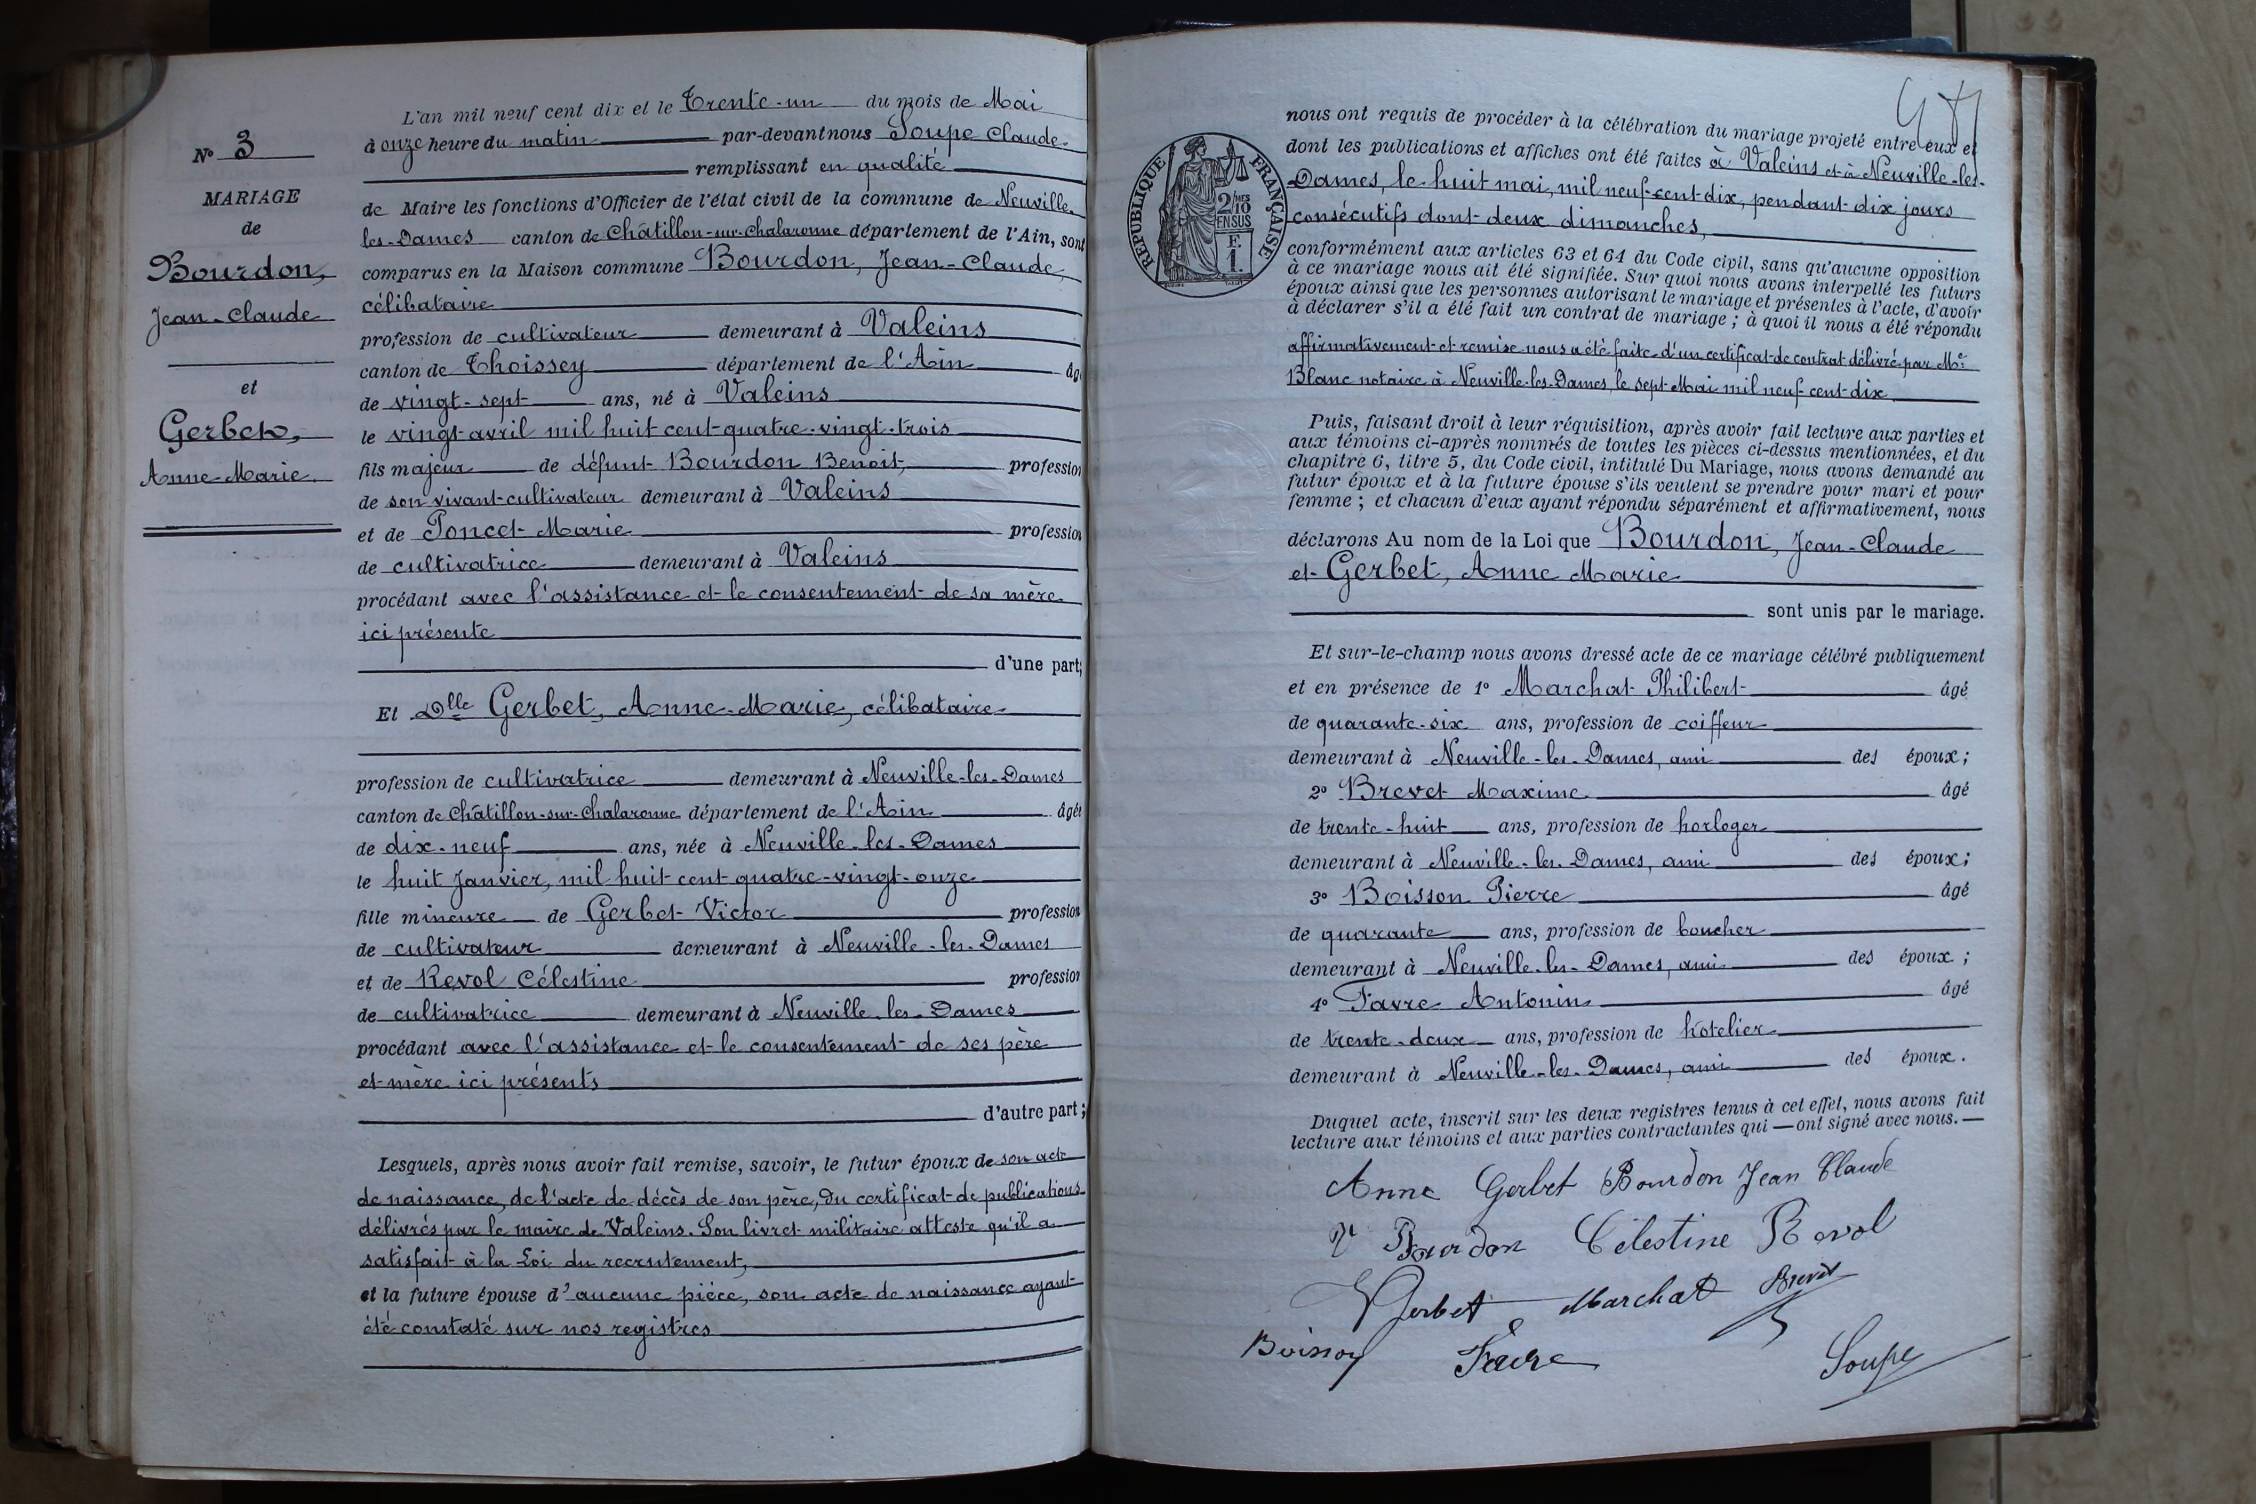 N° 3
MARIAGE
de
Bourdon,
Jean-Claude
et
Gerbet,
Anne-Marie.
L'an mil neuf cent dix et le Trente-un du mois de Mai
à onze heure du matin par-devant nous Soupe Claude
remplissant en qualité
de Maire les fonctions d'Officier de l'état civil de la commune de Neuville-
les-Dames canton de Châtillon-sur-Chalaronne département de l'Ain, sont
comparus en la Maison commune Bourdon, Jean-Claude,
célibataire
profession de cultivateur demeurant à Valeins
canton de Thoissey département de l'Ain âgé
de vingt-sept ans, né à Valeins
le vingt avril mil huit cent quatre-vingt-trois
fils majeur de défunt Bourdon Benoit, profession
de son vivant cultivateur demeurant à Valeins
et de Poncet Marie profession
de cultivatrice demeurant à Valeins
procédant avec l'assistance et le consentement de sa mère
ici présente
d'une part;
Et Dlle Gerbet, Anne-Marie, célibataire
profession de cultivatrice demeurant à Neuville-les-Dames
canton de Châtillon-sur-Chalaronne département de l'Ain âgée
de dix-neuf ans, née à Neuville-les-Dames
le huit Janvier, mil huit cent quatre-vingt-onze
fille mineure de Gerbet Victor profession
de cultivateur demeurant à Neuville-les-Dames
et de Revol Célestine profession
de cultivatrice demeurant à Neuville-les-Dames
procédant avec l'assistance et le consentement de ses père
et mère ici présents
d'autre part;
Lesquels, après nous avoir fait remise, savoir, le futur époux de son acte
de naissance, de l'acte de décès de son père, du certificat de publications
délivrés par le maire de Valeins. Son livret militaire atteste qu'il a
satisfait à la Loi du recrutement,
et la future épouse d'aucune pièce, son acte de naissance ayant
été constaté sur nos registres
RÉPUBLIQUE FRANÇAISE
2/10MES
EN SUS
F.
1.
nous ont requis de procéder à la célébration du mariage projeté entre eux et
dont les publications et affiches ont été faites à Valeins et à Neuville-les-
Dames, le huit mai, mil neuf-cent-dix, pendant dix jours
consécutifs dont deux dimanches,
conformément aux articles 63 et 64 du Code civil, sans qu'aucune opposition
à ce mariage nous ait été signifiée. Sur quoi nous avons interpellé les futurs
époux ainsi que les personnes autorisant le mariage et présentes à l'acte, d'avoir
à déclarer s'il a été fait un contrat de mariage; à quoi il nous a été répondu
affirmativement et remise nous a été faite d'un certificat de contrat délivré par Me
Blanc notaire à Neuville-les-Dames, le sept Mai mil neuf cent dix
Puis, faisant droit à leur réquisition, après avoir fait lecture aux parties et
aux témoins ci-après nommés de toutes les pièces ci-dessus mentionnées, et du
chapitre 6, titre 5, du Code civil, intitulé Du Mariage, nous avons demandé au
futur époux et à la future épouse s'ils veulent se prendre pour mari et pour
femme; et chacun d'eux ayant répondu séparément et affirmativement, nous
déclarons Au nom de la Loi que Bourdon, Jean-Claude
et Gerbet, Anne Marie
sont unis par le mariage.
Et sur-le-champ nous avons dressé acte de ce mariage célébré publiquement
et en présence de 1° Marchat Philibert âgé
de quarante-six ans, profession de coiffeur
demeurant à Neuville-les-Dames, ami des époux;
2° Brevet Maxime âgé
de trente-huit ans, profession de horloger
demeurant à Neuville-les-Dames, ami des époux;
3° Boisson Pierre âgé
de quarante ans, profession de boucher
demeurant à Neuville-les-Dames, ami des époux;
4° Favre Antonin âgé
de trente-deux ans, profession de hôtelier
demeurant à Neuville-les-Dames, ami des époux.
Duquel acte, inscrit sur les deux registres tenus à cet effet, nous avons fait
lecture aux témoins et aux parties contractantes qui — ont signé avec nous. —
Anne Gerbet Bourdon Jean Claude
Ve Bourdon Célestine Revol
Gerbet Marchat Brevet
Boisson Favre Soupe